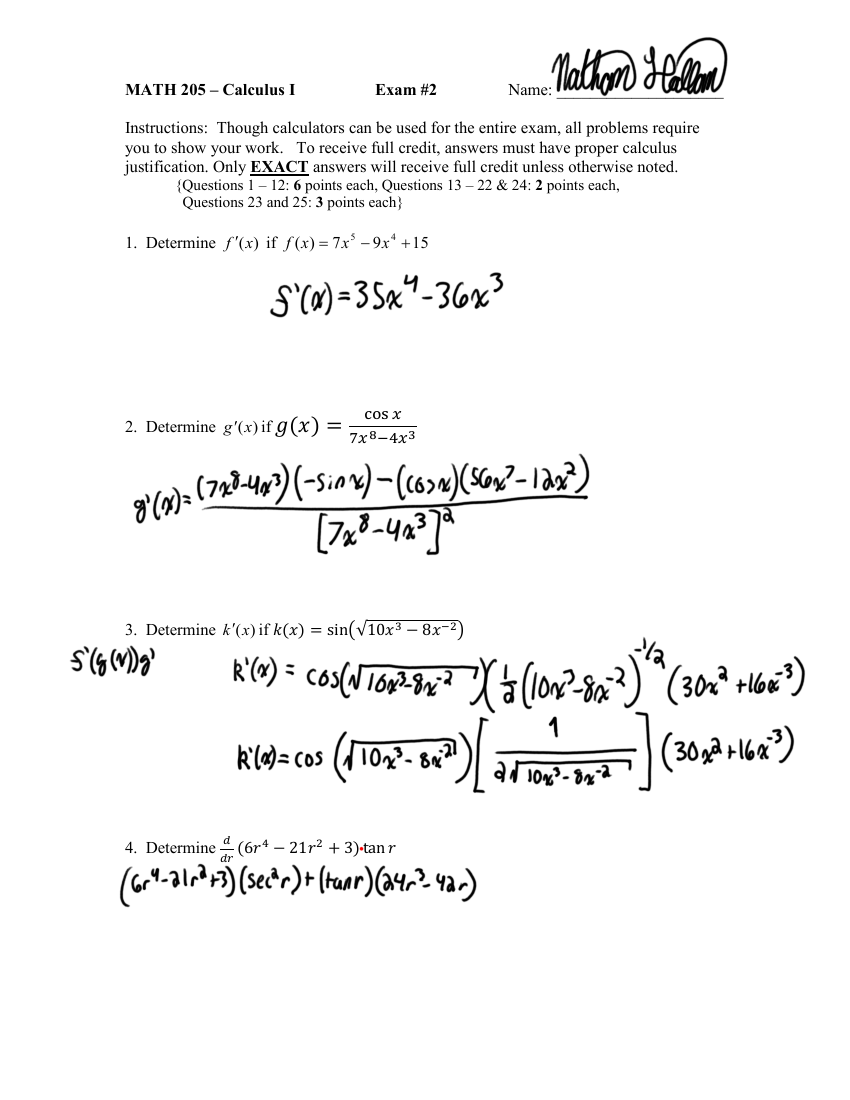 MATH 205 – Calculus I Exam #2 Name: Nathan Hallam
Instructions: Though calculators can be used for the entire exam, all problems require
you to show your work. To receive full credit, answers must have proper calculus
justification. Only EXACT answers will receive full credit unless otherwise noted.
{Questions 1 – 12: 6 points each, Questions 13 – 22 & 24: 2 points each,
Questions 23 and 25: 3 points each}
1. Determine f′(x) if f(x) = 7x⁵ − 9x⁴ + 15
f'(x) = 35x⁴ - 36x³
2. Determine g′(x) if g(x) = cos x / (7x⁸−4x³)
g'(x) = (7x⁸-4x³)(-sin x) - (cos x)(56x⁷-12x²) / [7x⁸-4x³]²
3. Determine k′(x) if k(x) = sin(√(10x³ − 8x⁻²))
f'(g(x))g'
k'(x) = cos(√(10x³-8x⁻²))(½(10x³-8x⁻²)^(-1/2)(30x²+16x⁻³)
k'(x) = cos(√(10x³-8x⁻²))[1 / 2√(10x³-8x⁻²)](30x²+16x⁻³)
4. Determine d/dr (6r⁴ − 21r² + 3)·tan r
(6r⁴-21r²+3)(sec²r)+(tan r)(24r³-42r)